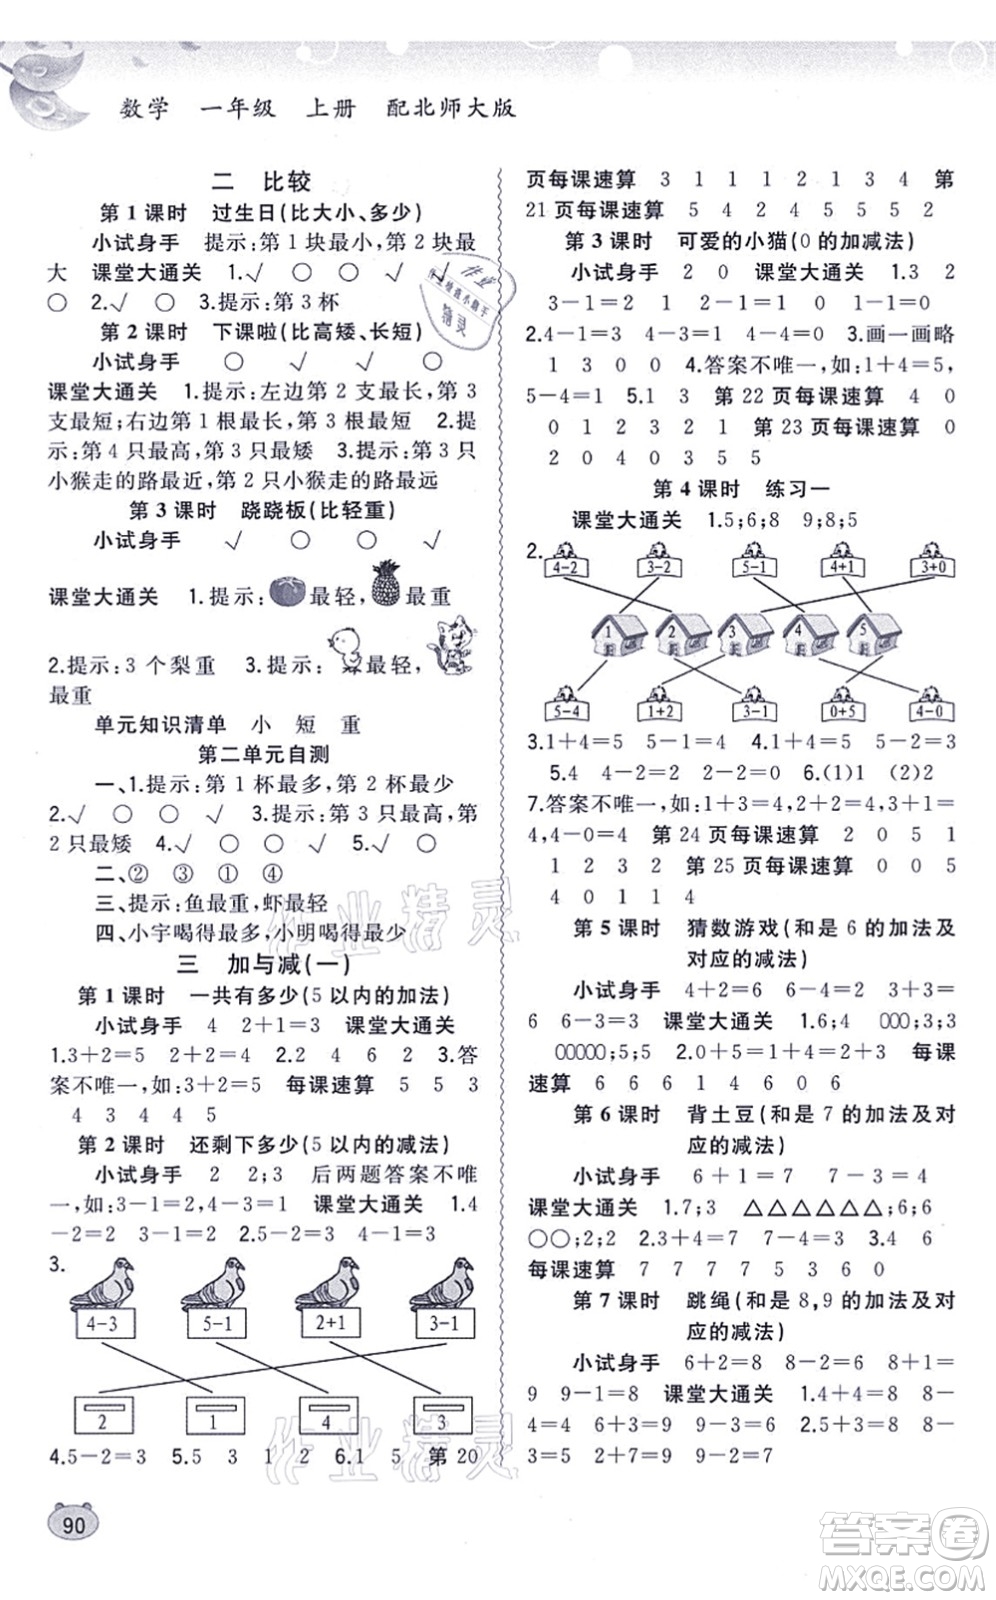 数学 一年级 上册 配北师大版
二 比较
第 1 课时 过生日(比大小、多少)
小试身手 提示:第 1 块最小,第 2 块最
大 课堂大通关 1.√ ○ ○ √
○ 2.√ ○ 3.提示:第 3 杯
第 2 课时 下课啦(比高矮、长短)
小试身手 ○ √ ○ √
课堂大通关 1.提示:左边第 2 支最长,第 3
支最短;右边第 1 根最长,第 3 根最短 2.提
示:第 4 只最高,第 3 只最矮 3.提示:第 3 只
小猴走的路最近,第 2 只小猴走的路最远
第 3 课时 跷跷板(比轻重)
小试身手 √ ○ ○ √
课堂大通关 1.提示: 最轻, 最重
2.提示:3 个梨重 3.提示: 最轻,
最重
单元知识清单 小 短 重
第二单元自测
一、1.提示:第 1 杯最多,第 2 杯最少
2.√ ○ ○ √ 3.提示:第 3 只最高,第
2 只最矮 4.√ ○ ○ √ 5.√ ○
二、② ③ ① ④
三、提示:鱼最重,虾最轻
四、小宇喝得最多,小明喝得最少
三 加与减(一)
第 1 课时 一共有多少(5 以内的加法)
小试身手 4 2+1=3 课堂大通关
1.3+2=5 2+2=4 2.2 4 6 2 3.答
案不唯一,如:3+2=5 每课速算 5 5 3
4 3 4 4 5
第 2 课时 还剩下多少(5 以内的减法)
小试身手 2 2;3 后两题答案不唯
一,如:3-1=2,4-3=1 课堂大通关 1.4
-2=2 3-1=2 2.5-2=3 4-1=3
3.
4-3 5-1 2+1 3-1
2 1 4 3
4.5-2=3 5.5 3 1 2 6.1 5 第 20
90
页每课速算 3 1 1 1 2 1 3 4 第
21 页每课速算 5 4 2 4 5 5 5 2
第 3 课时 可爱的小猫(0 的加减法)
小试身手 2 0 课堂大通关 1.3 2
3-1=2 1 1 2-1=1 0 1-1=0
2.4-1=3 4-3=1 4-4=0 3.画一画略
1 3 0 0 4.答案不唯一,如:1+4=5,
5-4=1 5.1 3 第 22 页每课速算 4 0
0 1 2 3 2 1 第 23 页每课速算 0
2 0 4 0 3 5 5
第 4 课时 练习一
课堂大通关 1.5;6;8 9;8;5
2.
4-2 3-2 5-1 4+1 3+0
1 2 3 4 5
5-4 1+2 3-1 0+5 4-0
3.1+4=5 5-1=4 4.1+4=5 5-2=3
5.4 4-2=2 2-2=0 6.(1)1 (2)2
7.答案不唯一,如:1+3=4,3+1=
4,4-0=4 第 24 页每课速算 2 0 5 1
1 2 3 2 第 25 页每课速算 0 0 5
4 0 1 1 4
第 5 课时 猜数游戏(和是 6 的加法及
对应的减法)
小试身手 4+2=6 6-4=2 3+3=
6 6-3=3 课堂大通关 1.6;4 000;3;3
00000;5;5 2.0+5=1+4=2+3 每课
速算 6 6 6 1 4 6 0 6
第 6 课时 背土豆(和是 7 的加法及对
应的减法)
小试身手 6+1=7 7-3=4
课堂大通关 1.7;3 △△△△△△;6;6
○○;2;2 2.3+4=7 7-4=3 3.4 6
每课速算 7 7 7 7 5 3 6 0
第 7 课时 跳绳(和是 8,9 的加法及对
应的减法)
小试身手 6+2=8 8-2=6 8+1=
9 9-1=8 课堂大通关 1.4+4=8 8-
4=4 6+3=9 9-3=6 2.5+3=8 8-
3=5 2+7=9 9-7=2
作业精灵
作业精灵
答案卷
MXQE.COM